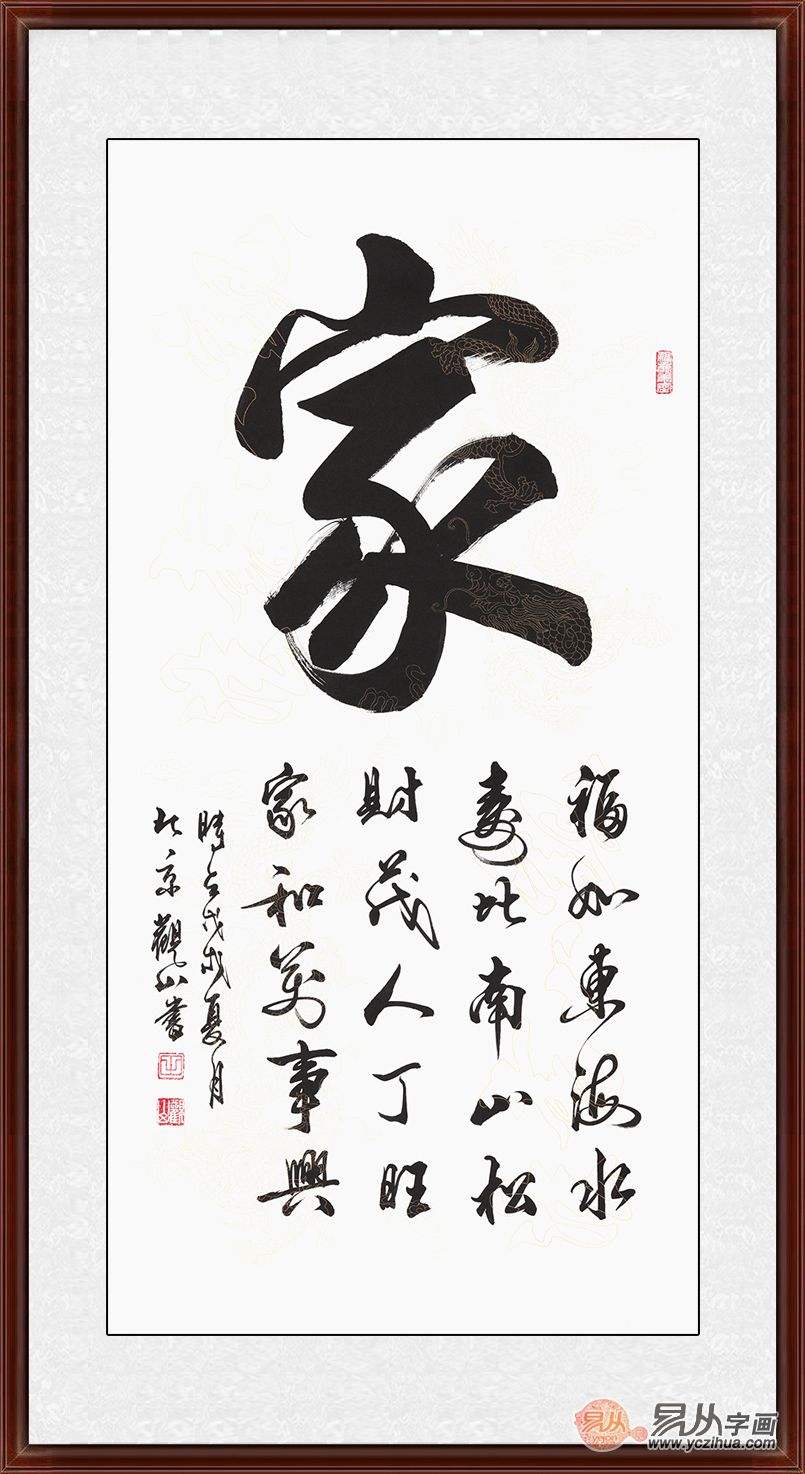 家
福如東海水
壽比南山松
財茂人丁旺
家和萬事興
時在戊戌夏月
北京觀山書
易从字画
www.yczihua.com